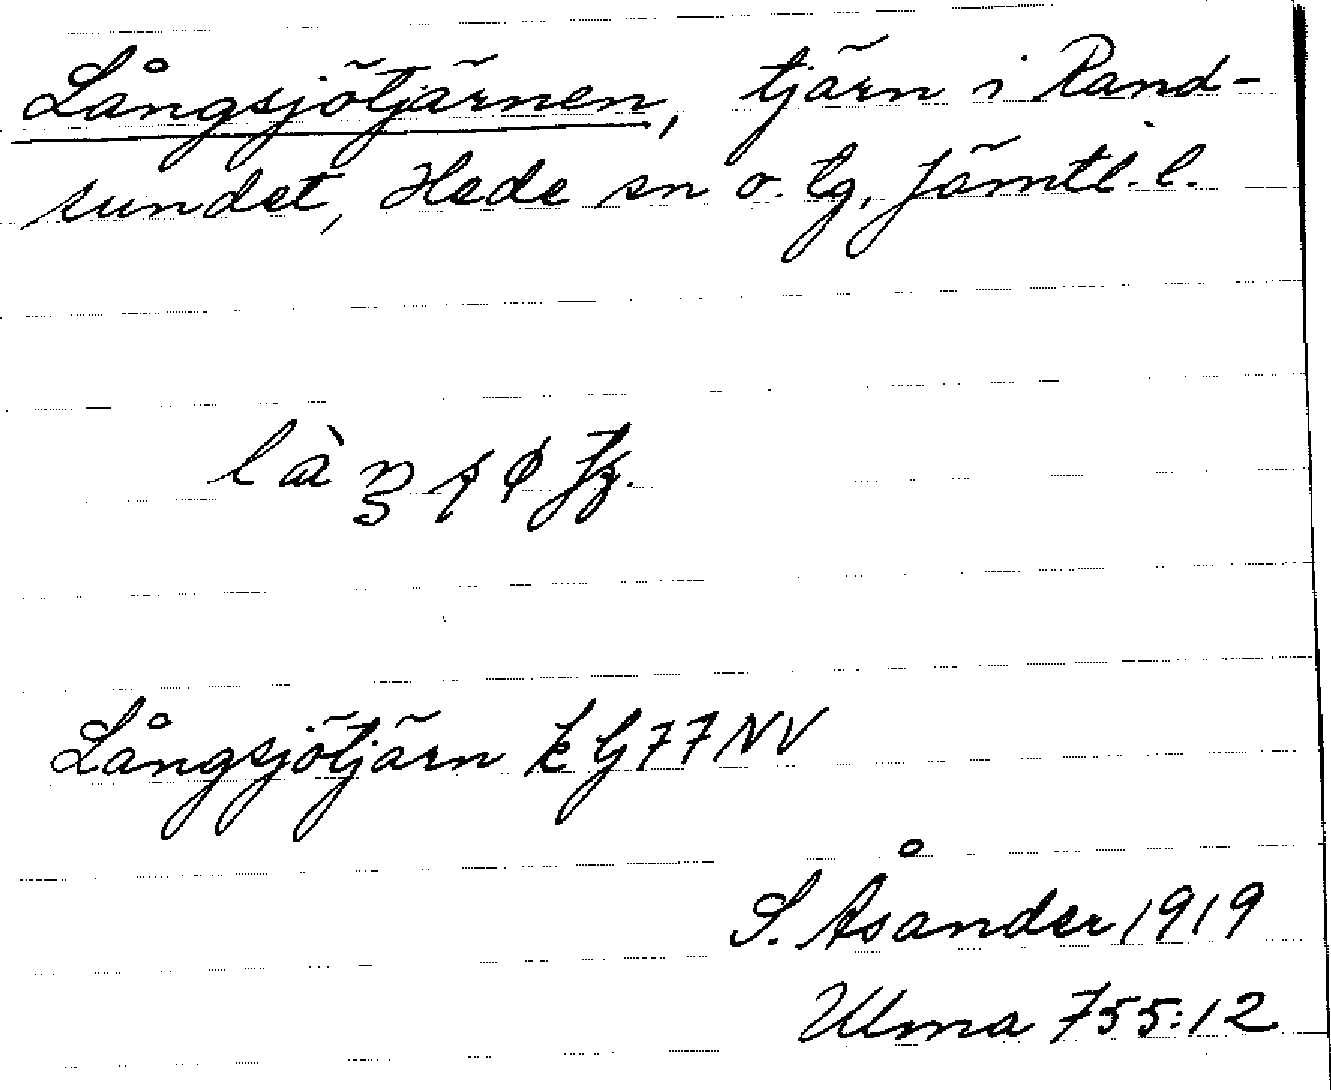 Långsjötjärnen, tjärn i Rand-
sundet, Hede sn o. tg, Jämtl. l.
Långsjötjärn G77NV
S. Åsander 1919
Ulma 755:12